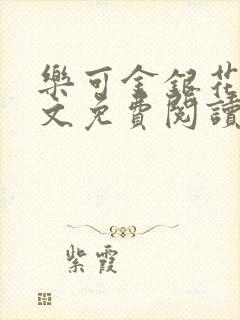 樂可金銀花
文免費閱讀
紫霞